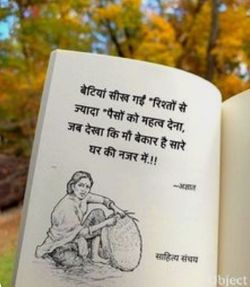 बेटियां सीख गईं "रिश्तों से
ज्यादा "पैसों को महत्व देना,
जब देखा कि माँ बेकार है सारे
घर की नजर में.!!
—अज्ञात
साहित्य संचय
Object